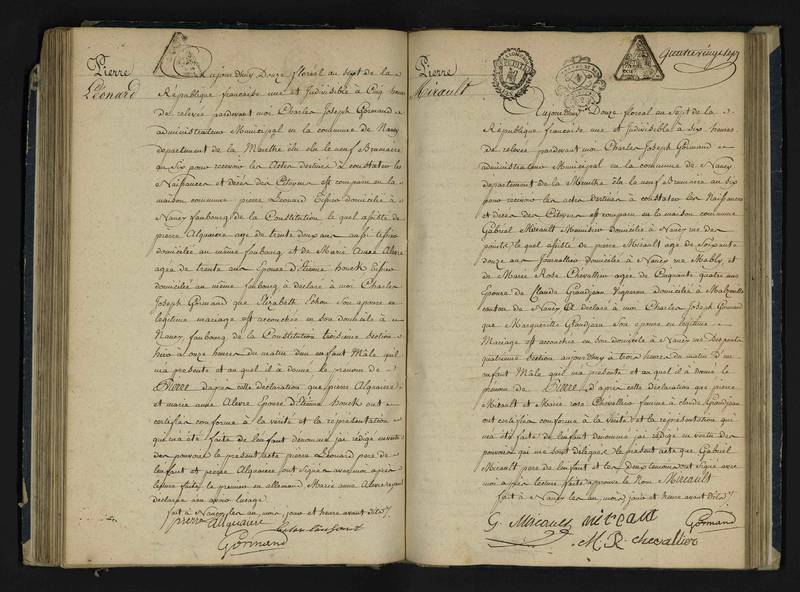 Pierre
Léonard
Aujourd'huy Douze floréal au sept de la
République francaise une et Indivisible à Cinq heures
de relevée pardevant moi Charles Joseph Gormand
administrateur Municipal en la commune de Nancy
departement de la Meurthe élu le neuf Brumaire
an Six pour recevoir les Actes destinés à constater les
Naissances et décès des Citoyens est comparu en la
maison commune pierre Léonard domicilié à
Nancy faubourg de la Constitution le quel assisté de
pierre Alquaire age de trente deux ans aussi
domicilié au même faubourg et de Marie Anne Alevre
agée de trente ans Epouse d'Etienne houck
domicilié au même faubourg à déclaré à moi Charles
Joseph Gormand que Elizabeth son epouse en
légitime mariage est accouchée en son domicile à
Nancy faubourg de la Constitution troisieme section
hier à onze heures du matin d'un enfant Mâle quil
ma présenté et au quel il à donné le prenom de
Pierre d'après cette déclaration que pierre Alquaire
et marie anne Alevre Epouse d'Etienne houck ont
certifiée conforme à la vérité et la réprésentation
qui ma été faite de l'enfant denommé jai rédigé en vertu
des pouvoirs le présent acte pierre Léonard pere de
l'enfant et pierre Alquaire sont signés avec moi après
lecture faite le premier en allemand Marie anne Alevre ayant
declarée son usage
fait à Nancy les an, mois, jour et heure avant dits
pierre alquaire
Gormand
quatre vingt sept
Pierre
Mirault
Aujourd'huy Douze floreal an Sept de la
République francaise une et indivisible à Six heures
de relevée pardevant moi Charles Joseph Gormand
administrateur Municipal en la commune de Nancy
departement de la Meurthe élu le neuf Brumaire an six
pour recevoir les actes destinés à constater les Naissances
et deces des Citoyens est comparu en la maison commune
Gabriel Mirault Menuisier domicilié à Nancy rue des
ponts, le quel assisté de pierre Mirault agé de Soixante
douze ans domicilié à Nancy rue Mably et
de Marie Rose Chevallier agée de Cinquante quatre ans
Epouse de Claude Grandjean Vigneron domicilié à Malzeville
canton de Nancy A déclaré à moi Charles Joseph Gormand
que Margueritte Grandjean Son epouse en légitime
Mariage est accouchée en son domicile à Nancy rue des ponts
quatrieme section aujourd'huy à trois heures du matin d'un
enfant Mâle quil ma présenté et au quel il à donné le
prenom de Pierre, d'après cette déclaration que pierre
Mirault et Marie rose Chevallier femme à claude Grandjean
ont certifiée conforme à la Vérité, et la réprésentation qui
ma été faite de l'enfant denommé jai rédigé en vertu des
pouvoirs qui me sont délégués le présent acte que Gabriel
Mirault pere de l'enfant et les deux temoins ont signé avec
moi après lecture faite approuvé le Nom Mirault
fait à Nancy les an, mois, jour et heure avant dits
G. Mirault mireaut Gormand
M. R. chevallier